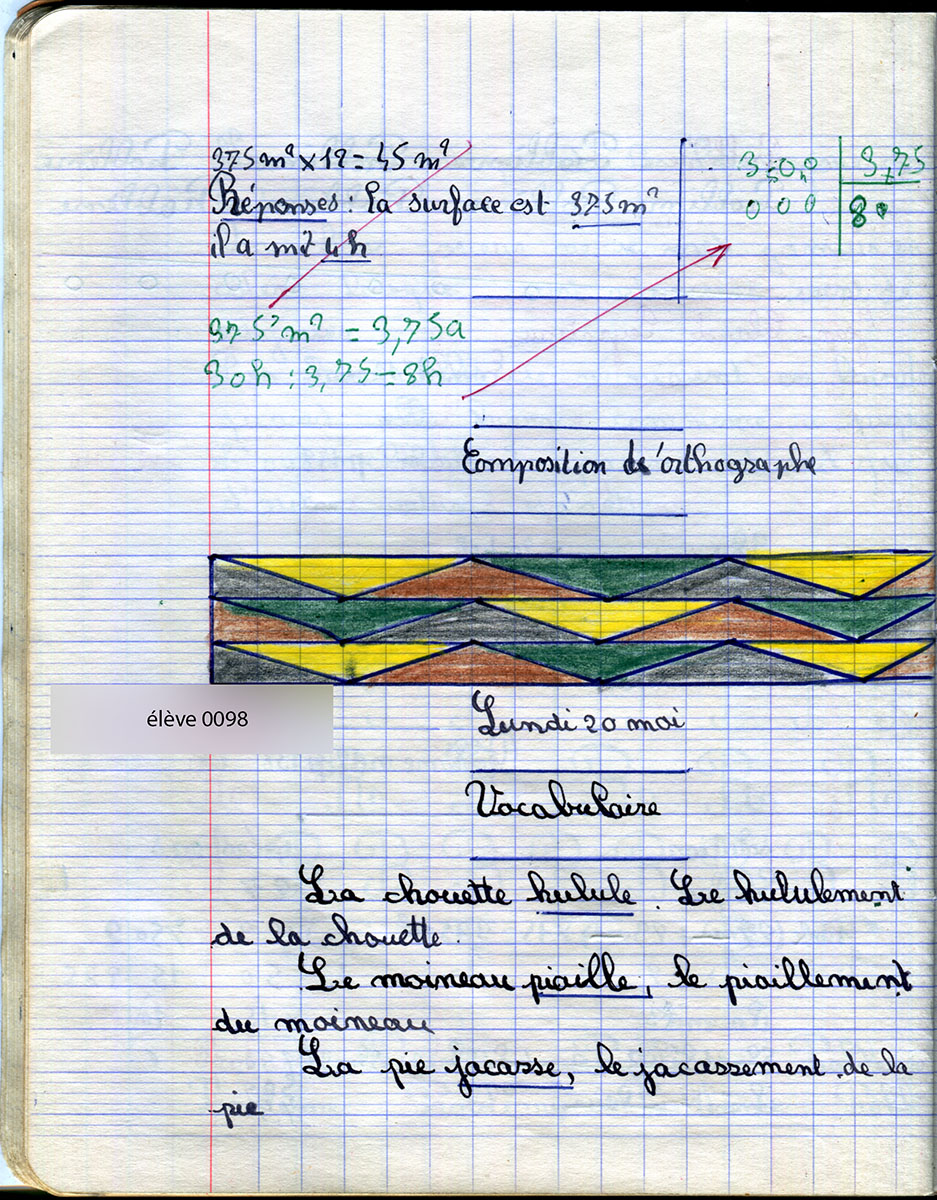 375 m² x 12 = 45 m²
Réponses : La surface est 375 m²
il a mi 4h
3,50,0 3,75
0 0 0 80
375 m² = 3,75a
30h : 3,75 = 8h
Composition d'orthographe
élève 0098
Lundi 20 mai
Vocabulaire
La chouette hulule. Le hululement
de la chouette.
Le moineau piaille, le piaillement
du moineau
La pie jacasse, le jacassement de la
pie